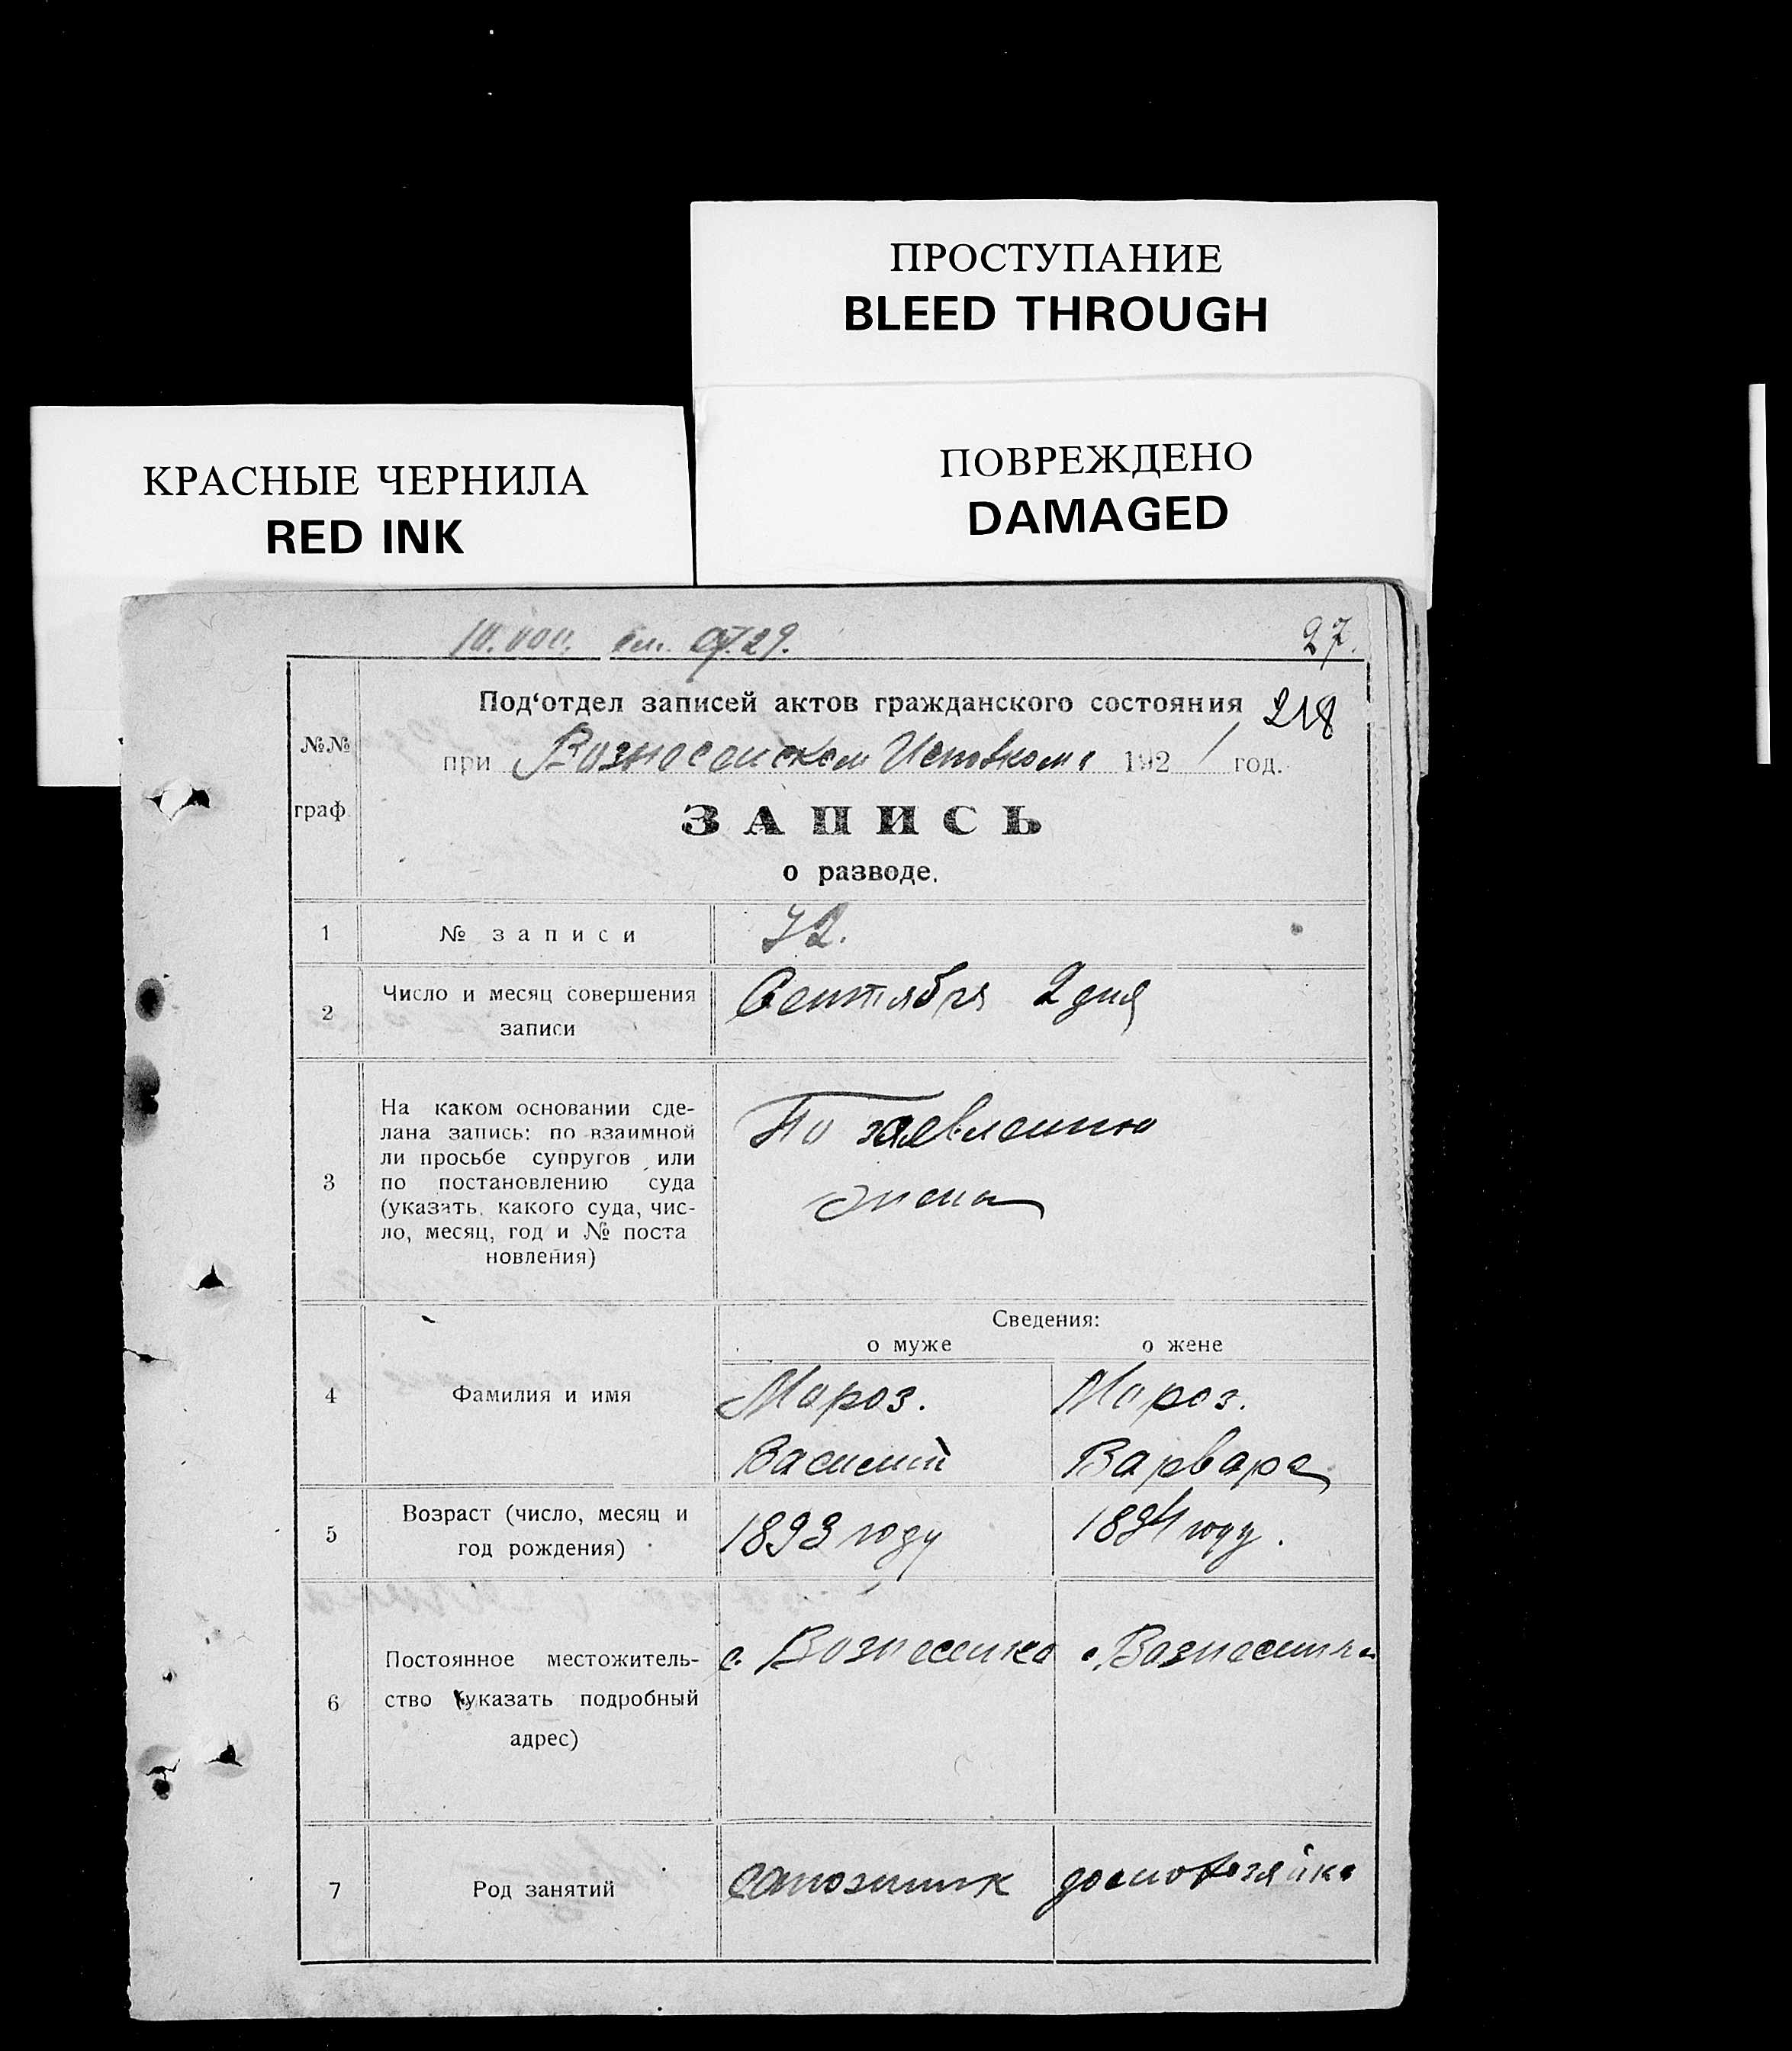 ПРОСТУПАНИЕ
BLEED THROUGH
ПОВРЕЖДЕНО
DAMAGED
КРАСНЫЕ ЧЕРНИЛА
RED INK
10.000.
27.
Под‘отдел записей актов гражданского состояния 218
№№
при Вознесенском Исполкоме 1921 год.
граф
ЗАПИСЬ
о разводе.
1 № записи
2 Число и месяц совершения Сентября 2 дня
записи
На каком основании сде-
лана запись: по взаимной По заявлению
ли просьбе супругов или
3 по постановлению суда жены
(указать какого суда, чис-
ло, месяц, год и № поста
новления)
Сведения:
о муже о жене
4 Фамилия и имя Мороз. Мороз.
Василий Варвара
5 Возраст (число, месяц и 1893 году 1894 году.
год рождения)
Постоянное местожитель- с. Вознесенка с. Вознесенка
6 ство (указать подробный
адрес)
7 Род занятий сапозник домохозяйка